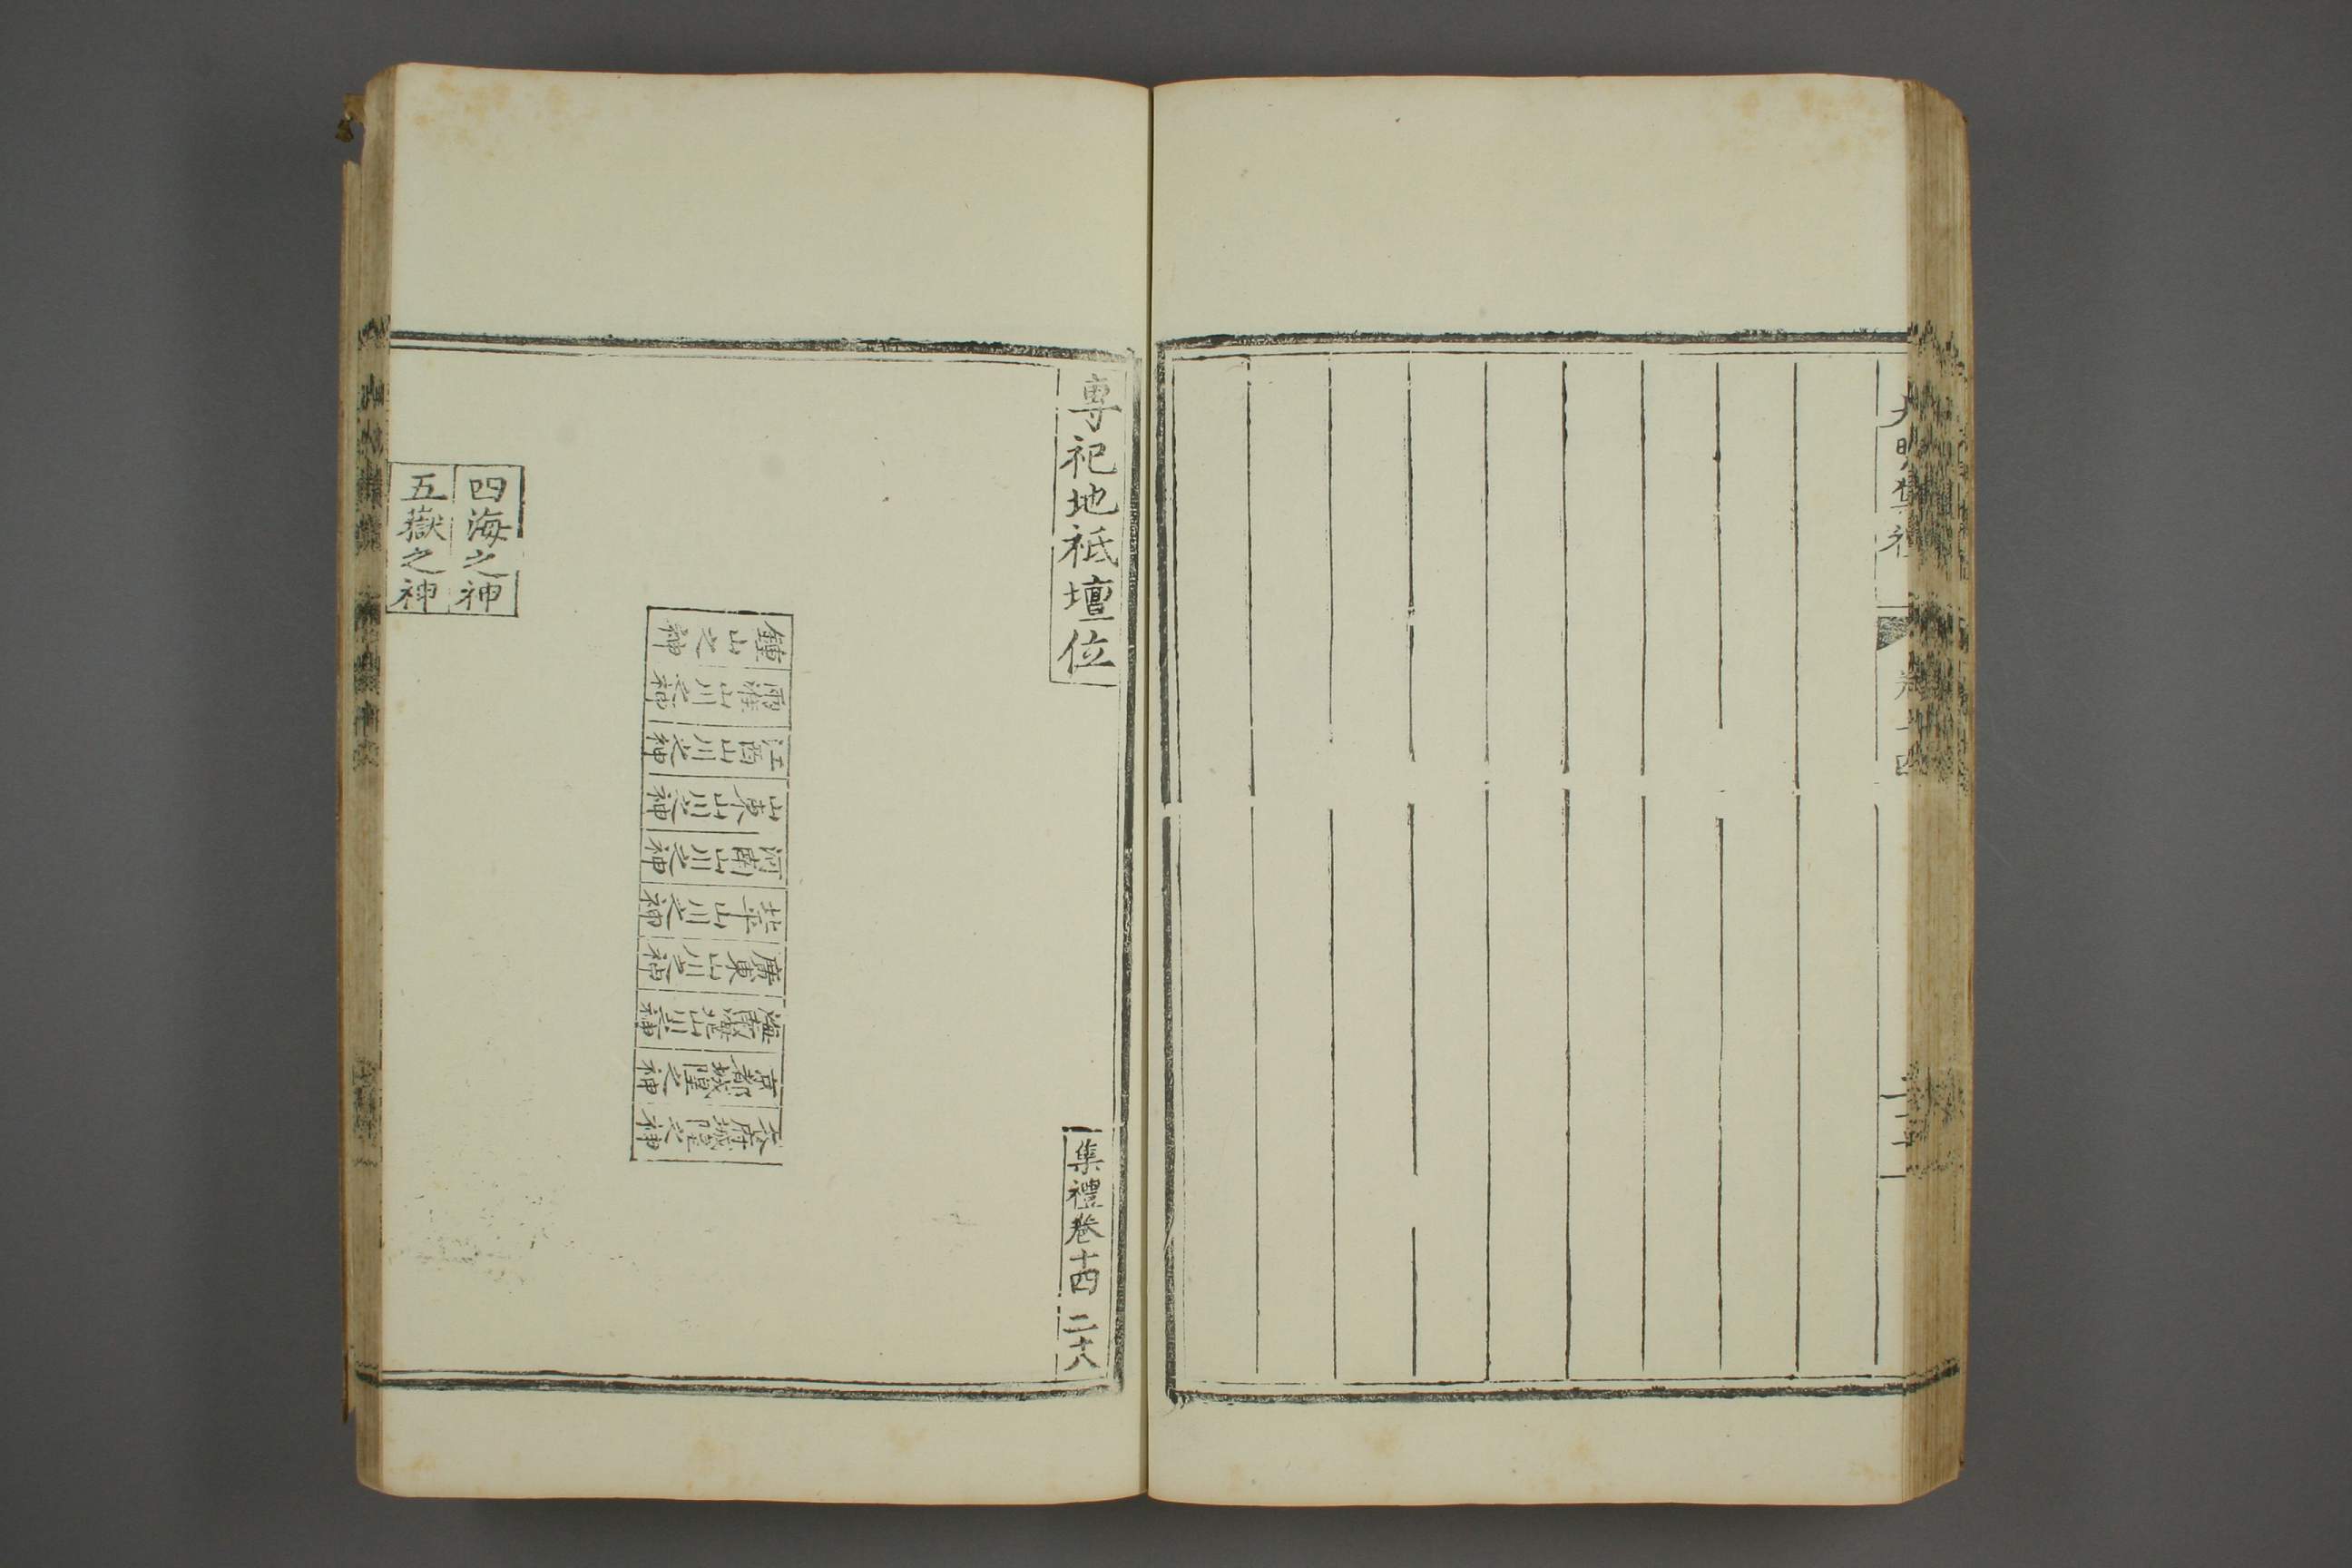 大明集禮
卷十四
專祀地祗壇位
集禮卷十四
二十八
鍾山之神
兩淮山川之神
江西山川之神
山東山川之神
河南山川之神
北平山川之神
廣東山川之神
海南海北山川之神
京都城隍之神
各府城隍之神
四海之神
五嶽之神